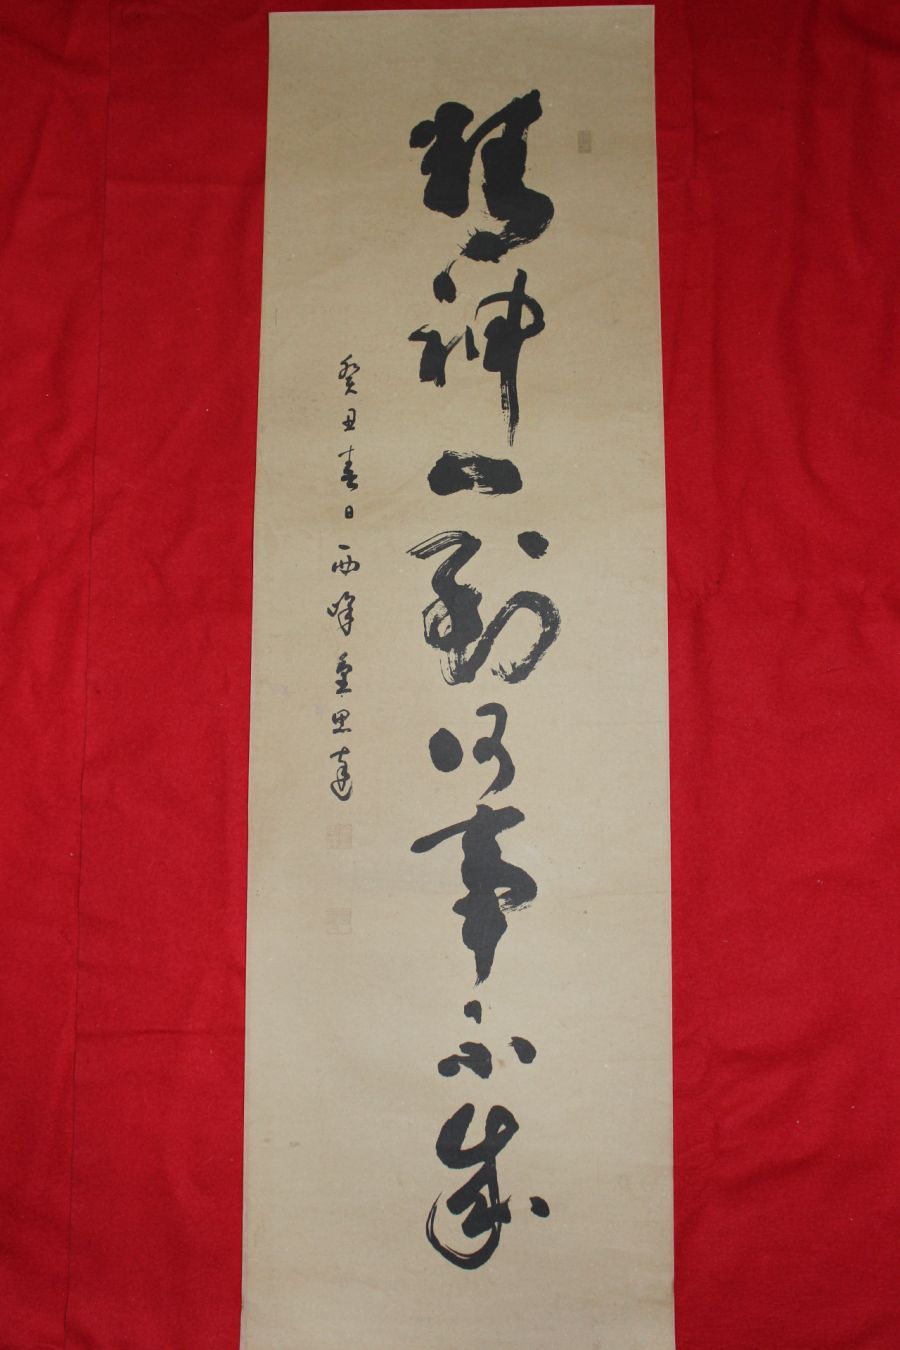 精神一到何事不成
癸丑春日 西峰 思達